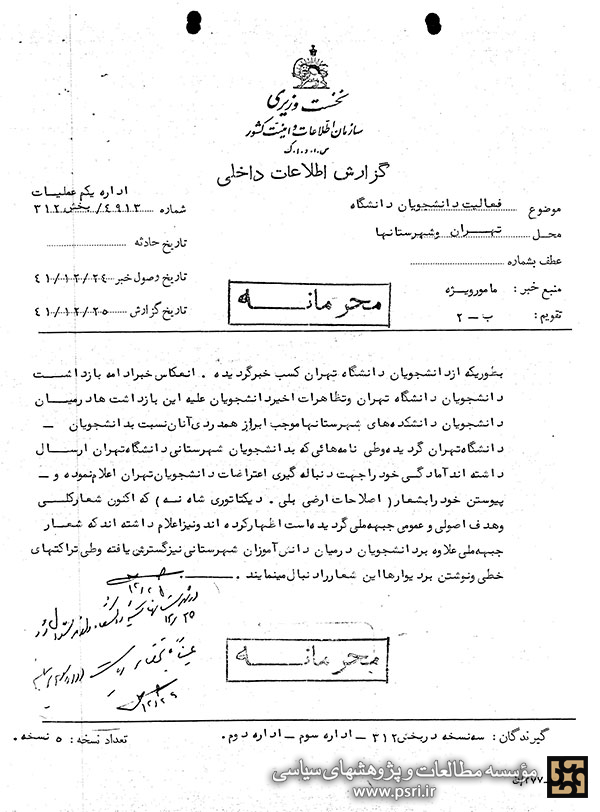 نخست وزیری
سازمان اطلاعات و امنیت کشور
س.ا.و.ا.ک
گزارش اطلاعات داخلی
اداره یکم عملیات
موضوع فعالیت دانشجویان دانشگاه
شماره ۴۹۱۳/بخش ۳۱۲
محل تهران وشهرستانها
تاریخ حادثه
عطف بشماره
تاریخ وصول خبر ۴۱/۱۲/۲۴
منبع خبر: مامورویژه
محرمانه
تاریخ گزارش ۴۱/۱۲/۲۵
تقویم: ب-۲
بطوریکه ازدانشجویان دانشگاه تهران کسب خبرگردیده . انعکاس خبرادامه بازداشت
دانشجویان دانشگاه تهران وتظاهرات اخیردانشجویان علیه این بازداشت هادرمیان
دانشجویان دانشکده‌های شهرستانهاموجب ابراز همدردی آنان نسبت بدانشجویان –
دانشگاه تهران گردیده وطی نامه‌هائی که بدانشجویان شهرستانی دانشگاه تهران ارسال
داشته اندآمادگی خودراجهت دنباله گیری اعتراضات دانشجویان تهران اعلام نموده و –
پیوستن خودرابشعار (اصلاحات ارضی بلی . دیکتاتوری شاه نه) که اکنون شعارکلی
وهدف اصولی و عمومی جبهه ملی گردیده است اظهارکرده اندونیزاعلام داشته اندکه شعار
جبهه ملی علاوه بردانشجویان درمیان دانش آموزان شهرستانی نیزگسترش یافته وطی تراکتهای
خطی ونوشتن بردیوارهااین شعاررادنبال مینمایند .
۱۲/۲۵
۱۲/۲۹
محرمانه
گیرندگان: سه نسخه دربخش ۳۱۲ – اداره سوم – اداره دوم .
تعداد نسخه: ۵ نسخه .
مؤسسه مطالعات و پژوهشهای سیاسی
www.psri.ir